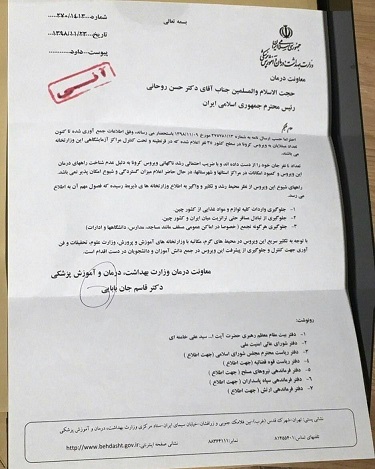 بسمه تعالی
شماره...۲۷۰/۱۴۱۳...
تاریخ...۱۳۹۸/۱۱/۲۳...
پیوست...دارد...
جمهوری اسلامی ایران
وزارت بهداشت، درمان و آموزش پزشکی
معاونت درمان
آنی
حجت الاسلام والمسلمین جناب آقای دکتر حسن روحانی
رئیس محترم جمهوری اسلامی ایران
احتراما عطف ارسال نامه به شماره مورخ ۱۳۹۸/۱۱/۰۹ باستحضار می رساند، وفق اطلاعات جمع آوری شده تا کنون
تعداد مبتلایان به ویروس کرونا در سطح کشور نفر اعلام شده که در قرنطینه و تحت کنترل مراکز آزمایشگاهی این وزارتخانه
می باشند.
تعداد نفر جان خود را از دست داده اند و با ضریب احتمالی رشد ناگهانی ویروس کرونا به دلیل عدم شناخت راههای درمان
این ویروس و کمبود امکانات در مراکز استانها و شهرستانها، در حال حاضر اعلام میزان گستردگی و شیوع امکان پذیر نمی باشد.
راههای شیوع این ویروس از نظر محیط رشد و تکثیر و واگیر به اطلاع وزارتخانه های ذیربط رسیده که فصول مهم آن به اطلاع
می رسد.
۱- جلوگیری واردات کلیه لوازم و مواد غذایی از کشور چین.
۲- جلوگیری از تبادل مسافر حتی ترانزیت میان ایران و کشور چین.
۳- جلوگیری هر گونه تجمع ( خصوصا در اماکن عمومی مسقف مانند مساجد، مدارس، دانشگاهها و ادارات )
با توجه به تکثیر سریع این ویروس در محیط های گرم، مکاتبه با وزارتخانه های آموزش و پرورش، وزارت علوم، تحقیقات و فن
آوری جهت کنترل و جلوگیری از پیشرفت این ویروس در جمع دانش آموزان و دانشجویان در دست اقدام است.
معاونت درمان وزارت بهداشت، درمان و آموزش پزشکی
دکتر قاسم جان بابایی
رونوشت:
۱- دفتر بیت مقام معظم رهبری حضرت آیت ا... سید علی خامنه ای
۲- دفتر شورای عالی امنیت ملی
۳- دفتر ریاست محترم مجلس شورای اسلامی (جهت اطلاع )
۴- دفتر ریاست قوه قضائیه ( جهت اطلاع )
۵- دفتر فرماندهی نیروهای مسلح ( جهت اطلاع )
۶- دفتر فرماندهی سپاه پاسداران ( جهت اطلاع )
۷- دفتر فرماندهی ارتش ( جهت اطلاع )
نشانی پستی: تهران- شهرک قدس (غرب)، بین فلامک جنوبی و زرافشان، خیابان سیمای ایران، ستاد مرکزی وزارت بهداشت، درمان و آموزش پزشکی
نشانی صفحه اینترنتی: http://www.behdasht.gov.ir